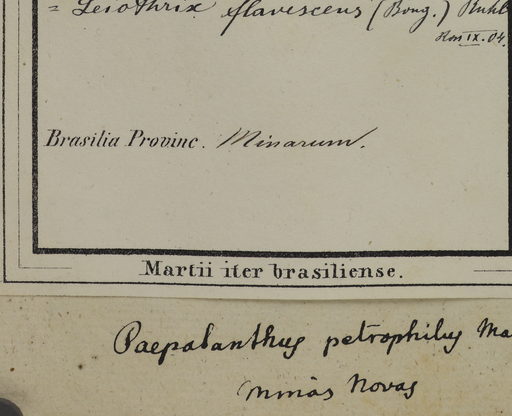 = Leiothrix flavescens (Bong.) Ruhl
IX.04.
Brasilia Provinc. Minarum.
Martii iter brasiliense.
Paepalanthus petrophilus Ma
Minas Novas